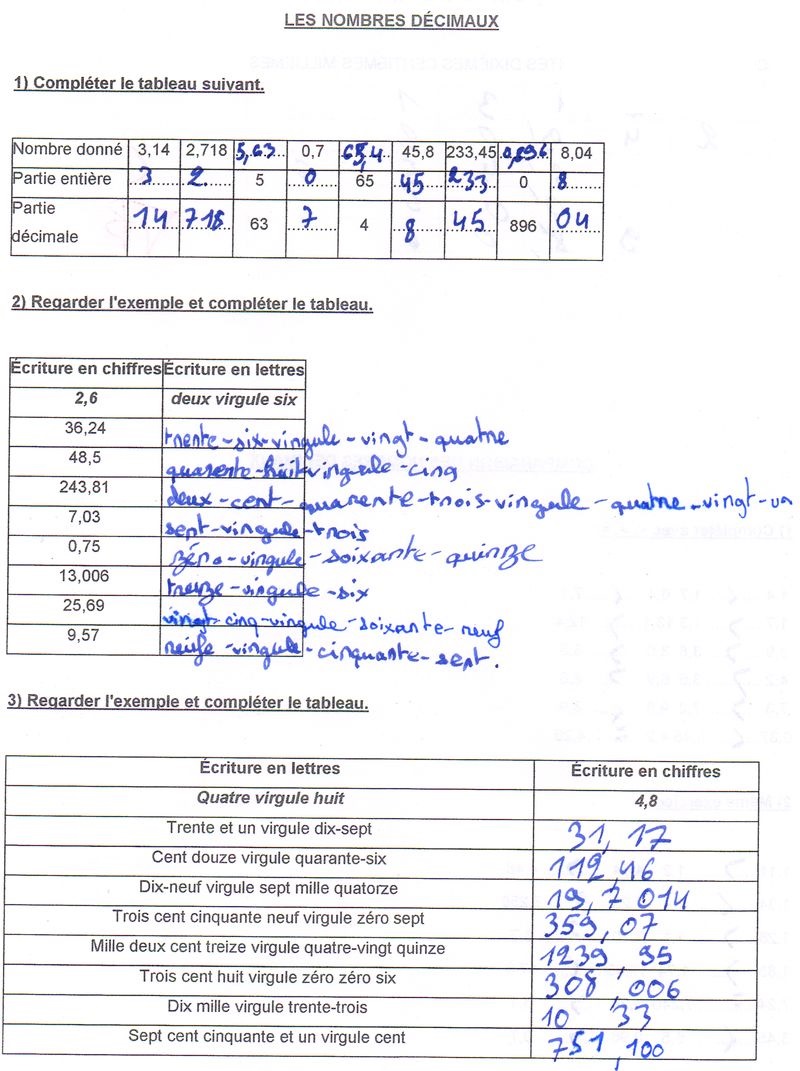 LES NOMBRES DÉCIMAUX
1) Compléter le tableau suivant.
Nombre donné 3,14 2,718 5,63 0,7 65,4 45,8 233,45 0,896 8,04
Partie entière 3 2 5 0 65 45 233 0 8
Partie décimale 14 718 63 7 4 8 45 896 04
2) Regarder l'exemple et compléter le tableau.
Écriture en chiffres Écriture en lettres
2,6 deux virgule six
36,24 trente-six-vingule-vingt-quatre
48,5 quarente-huit-vingule-cinq
243,81 deux-cent-quarente-trois-vingule-quatre-vingt-un
7,03 sept-vingule-trois
0,75 zéro-vingule-soixante-quinze
13,006 treize-vingule-six
25,69 vingt-cinq-vingule-soixante-neuf
9,57 neufe-vingule-cinquante-sept.
3) Regarder l'exemple et compléter le tableau.
Écriture en lettres Écriture en chiffres
Quatre virgule huit 4,8
Trente et un virgule dix-sept 31,17
Cent douze virgule quarante-six 112,46
Dix-neuf virgule sept mille quatorze 19,7 014
Trois cent cinquante neuf virgule zéro sept 359,07
Mille deux cent treize virgule quatre-vingt quinze 1239,95
Trois cent huit virgule zéro zéro six 308,006
Dix mille virgule trente-trois 10 33
Sept cent cinquante et un virgule cent 751,100